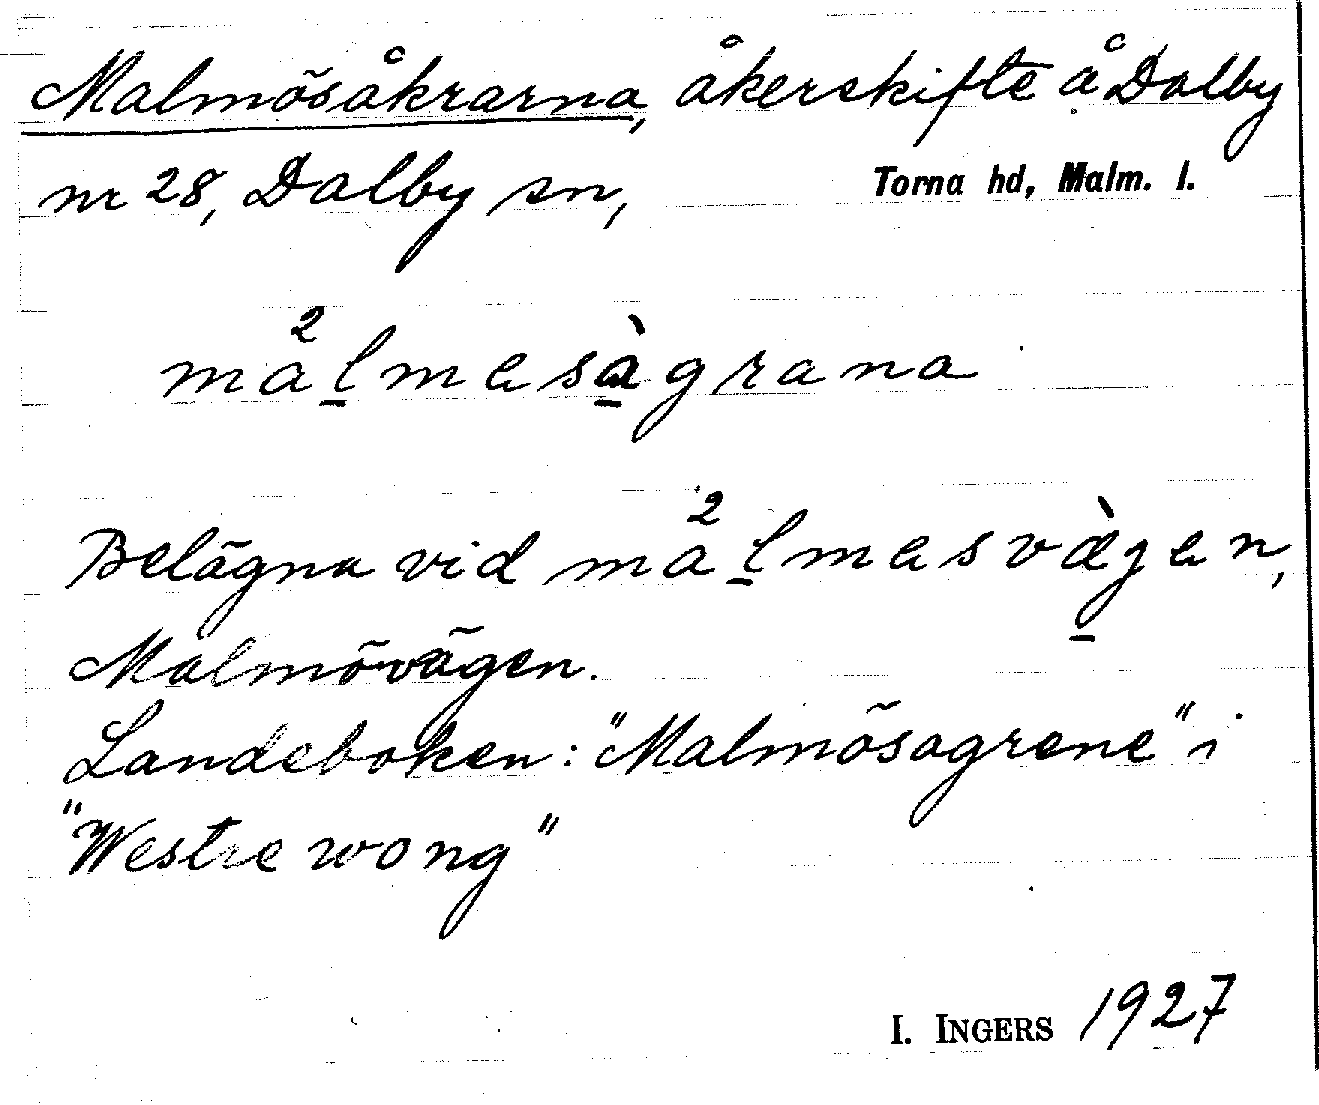 Malmösåkrarna, åkerskifte å Dalby
nr 28, Dalby sn, Torna hd, Malm. l.
ma²lmesàgrana
Belägna vid ma²lmesvàgen,
Malmövägen.
Landeboken: "Malmösagrene" i
"Westre wong"
I. INGERS 1927